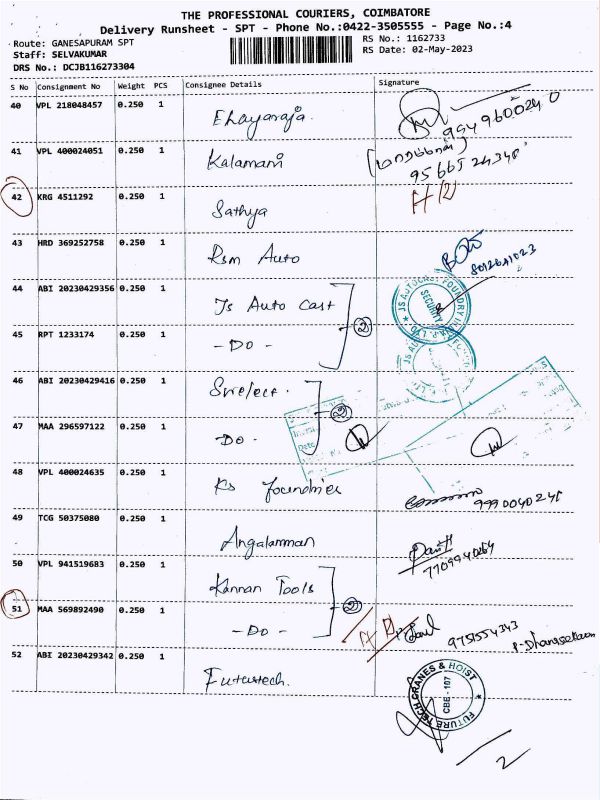 THE PROFESSIONAL COURIERS, COIMBATORE
Delivery Runsheet - SPT - Phone No.:0422-3505555 - Page No.:4
Route: GANESAPURAM SPT
RS No.: 1162733
Staff: SELVAKUMAR
RS Date: 02-May-2023
DRS No.: DCJB116273304
S No Consignment No Weight PCS Consignee Details Signature
40 VPL 218048457 0.250 1 Elayaraja.
41 VPL 400024051 0.250 1 Kalamani
95665 24340
42 KRG 4511292 0.250 1 Sathya
43 HRD 369252758 0.250 1 Rsm Auto
44 ABI 20230429356 0.250 1 Js Auto Cast
SECURITY
45 RPT 1233174 0.250 1 - Do -
2
46 ABI 20230429416 0.250 1
47 MAA 296597122 0.250 1 - Do -
2
48 VPL 400024635 0.250 1 Ks Foundries
9990040240
49 TCG 50375080 0.250 1 Angalamman
50 VPL 941519683 0.250 1 Kannan Tools
51 MAA 569892490 0.250 1 - Do -
2
9751554343
P-Dhanasekaran
52 ABI 20230429342 0.250 1 Futurtech.
FUTURE TECH CRANES & HOIST
CBE - 107
2